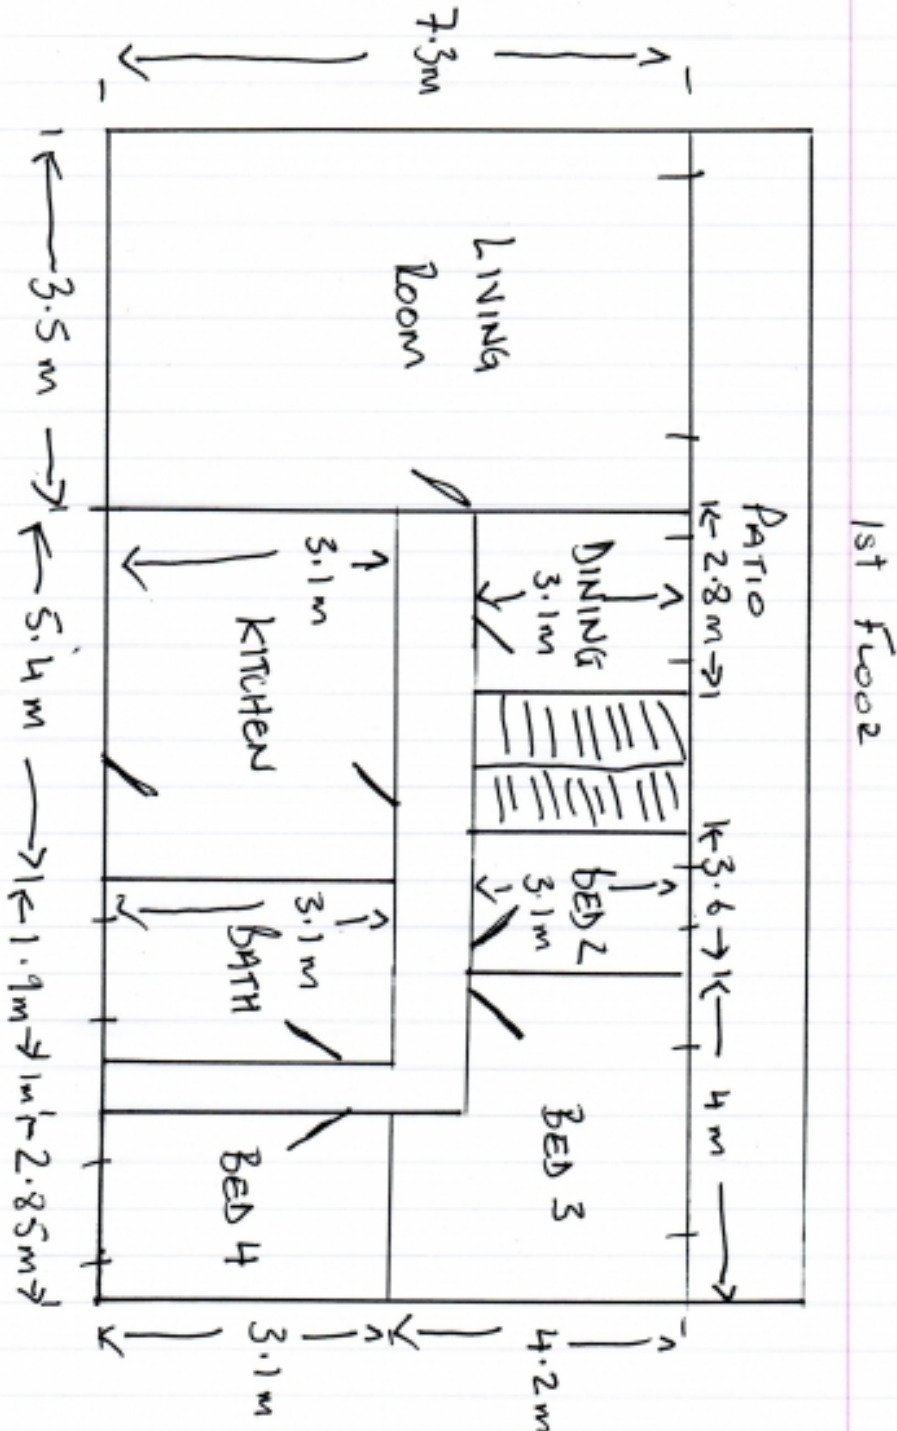 1st FLOOR
PATIO
2.8m
3.6
4m
7.3m
LIVING
ROOM
DINING
3.1m
BED 2
3.1m
BED 3
4.2m
3.1m
KITCHEN
3.1m
BATH
BED 4
3.1m
3.5m
5.4m
1.9m
1m
2.85m